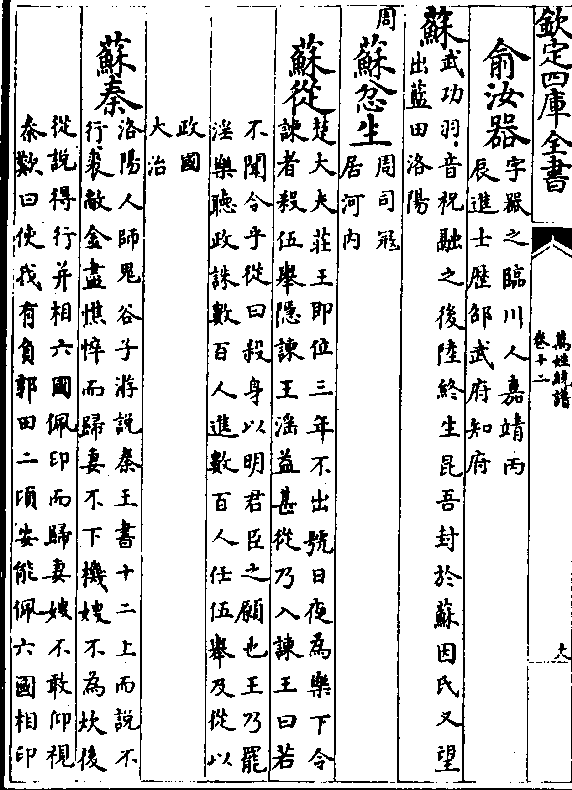 欽定四庫全書
萬姓統譜
卷十二
大
俞汝器
字器之臨川人嘉靖丙
辰進士歴邵武府知府
蘇
武功羽音祝融之後陸終生昆吾封於蘇因氏又望
出藍田洛陽
周
蘇忿生
周司冦
居河内
蘇從
楚大夫莊王即位三年不出號日夜為樂下令
諌者殺伍舉隠諌王滛益甚從乃入諌王曰若
不聞令乎從曰殺身以明君臣之願也王乃罷
滛樂聽政誅數百人進數百人任伍舉及從以
政國
大治
蘇秦
洛陽人師鬼谷子游説秦王書十二上而説不
行裘敝金盡憔悴而歸妻不下機嫂不為炊後
從説得行并相六國佩印而歸妻嫂不敢仰視
秦歎曰使我有負郭田二頃安能佩六國相印